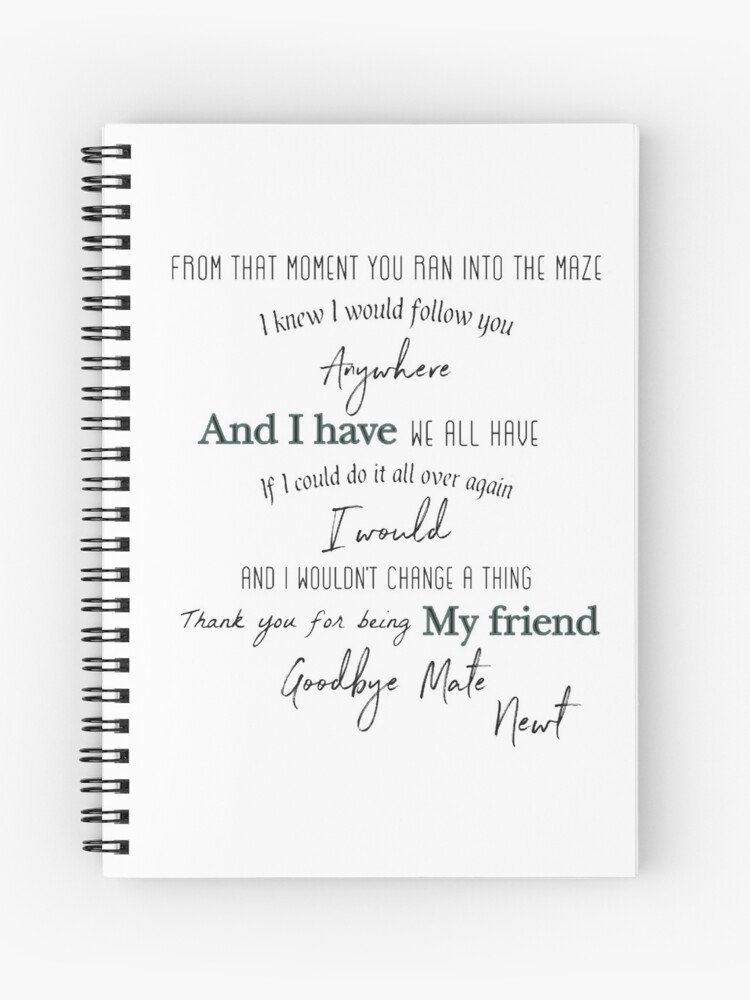 FROM THAT MOMENT YOU RAN INTO THE MAZE
I knew I would follow you
Anywhere
And I have WE ALL HAVE
If I could do it all over again
I would
AND I WOULDN'T CHANGE A THING
Thank you for being My friend
Goodbye Mate
Newt